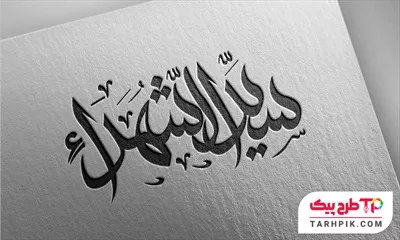 سیدالشهداء
طرح پیک
TARHPIK.COM